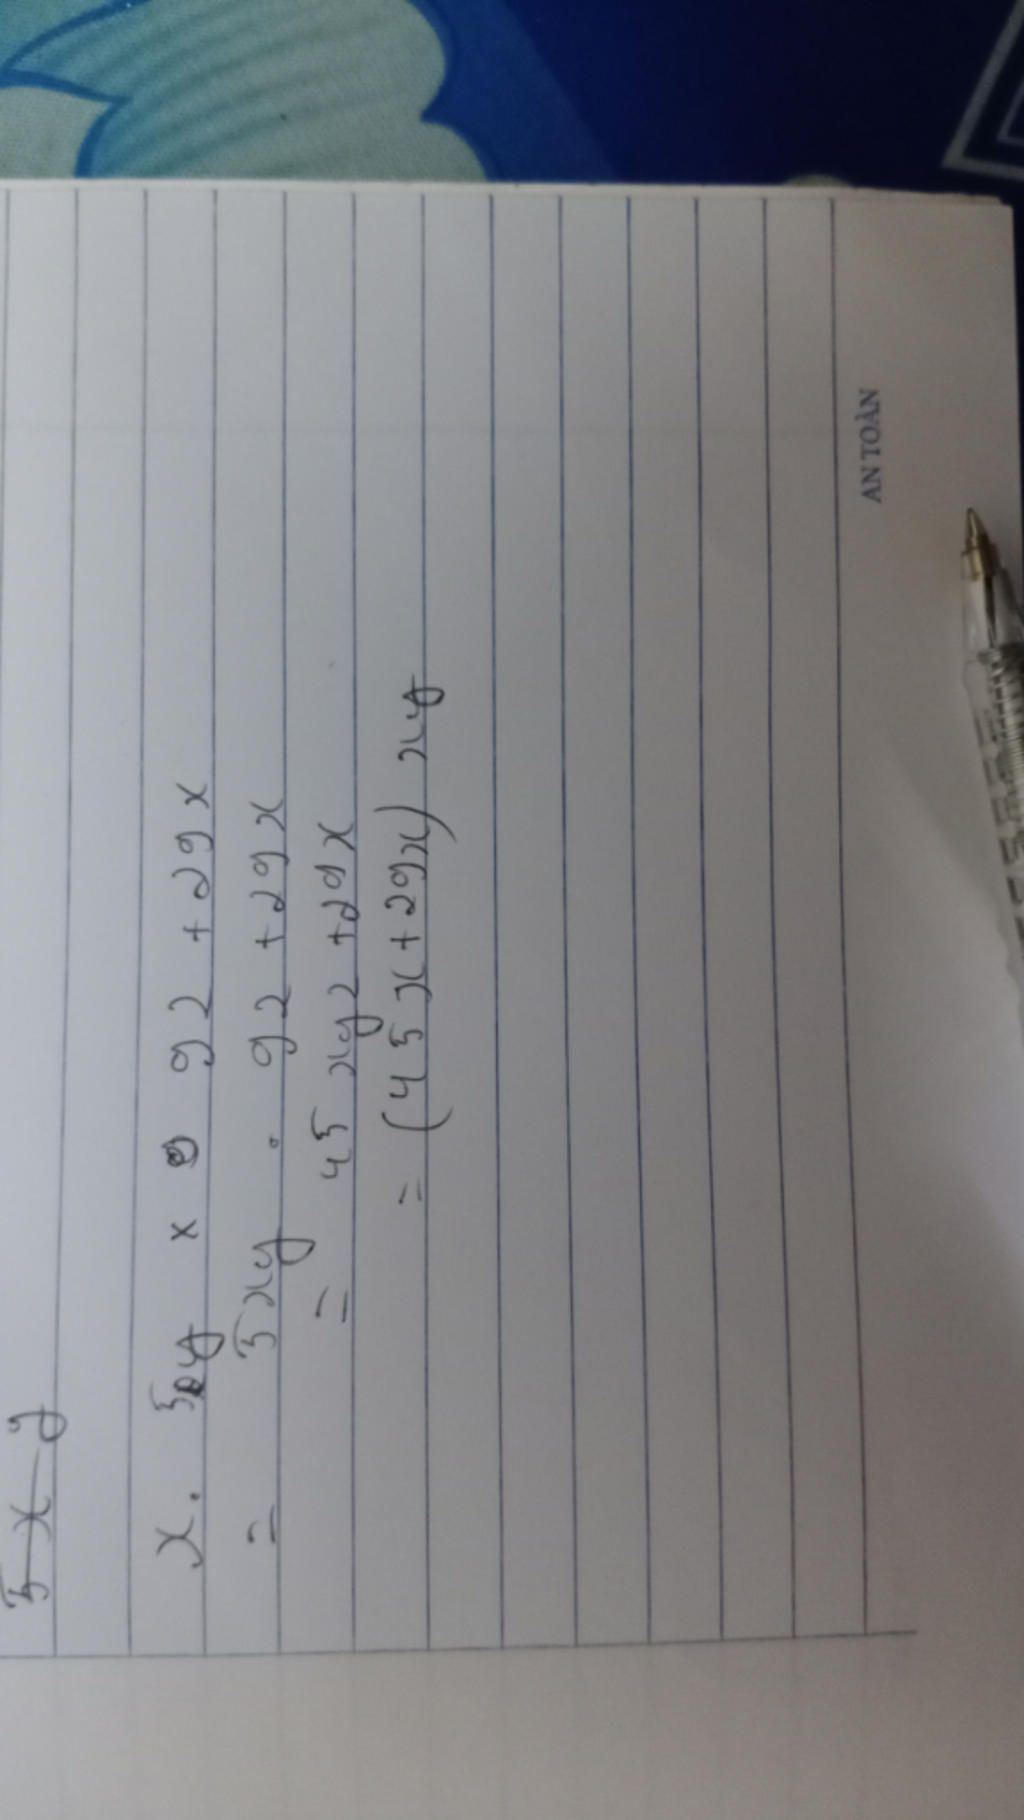 5xy
x. 5y x 92 + 29x
= 5xy . 92 + 29x
= 45 xy2 + 29x
= (45x + 29x) xy
AN TOÀN